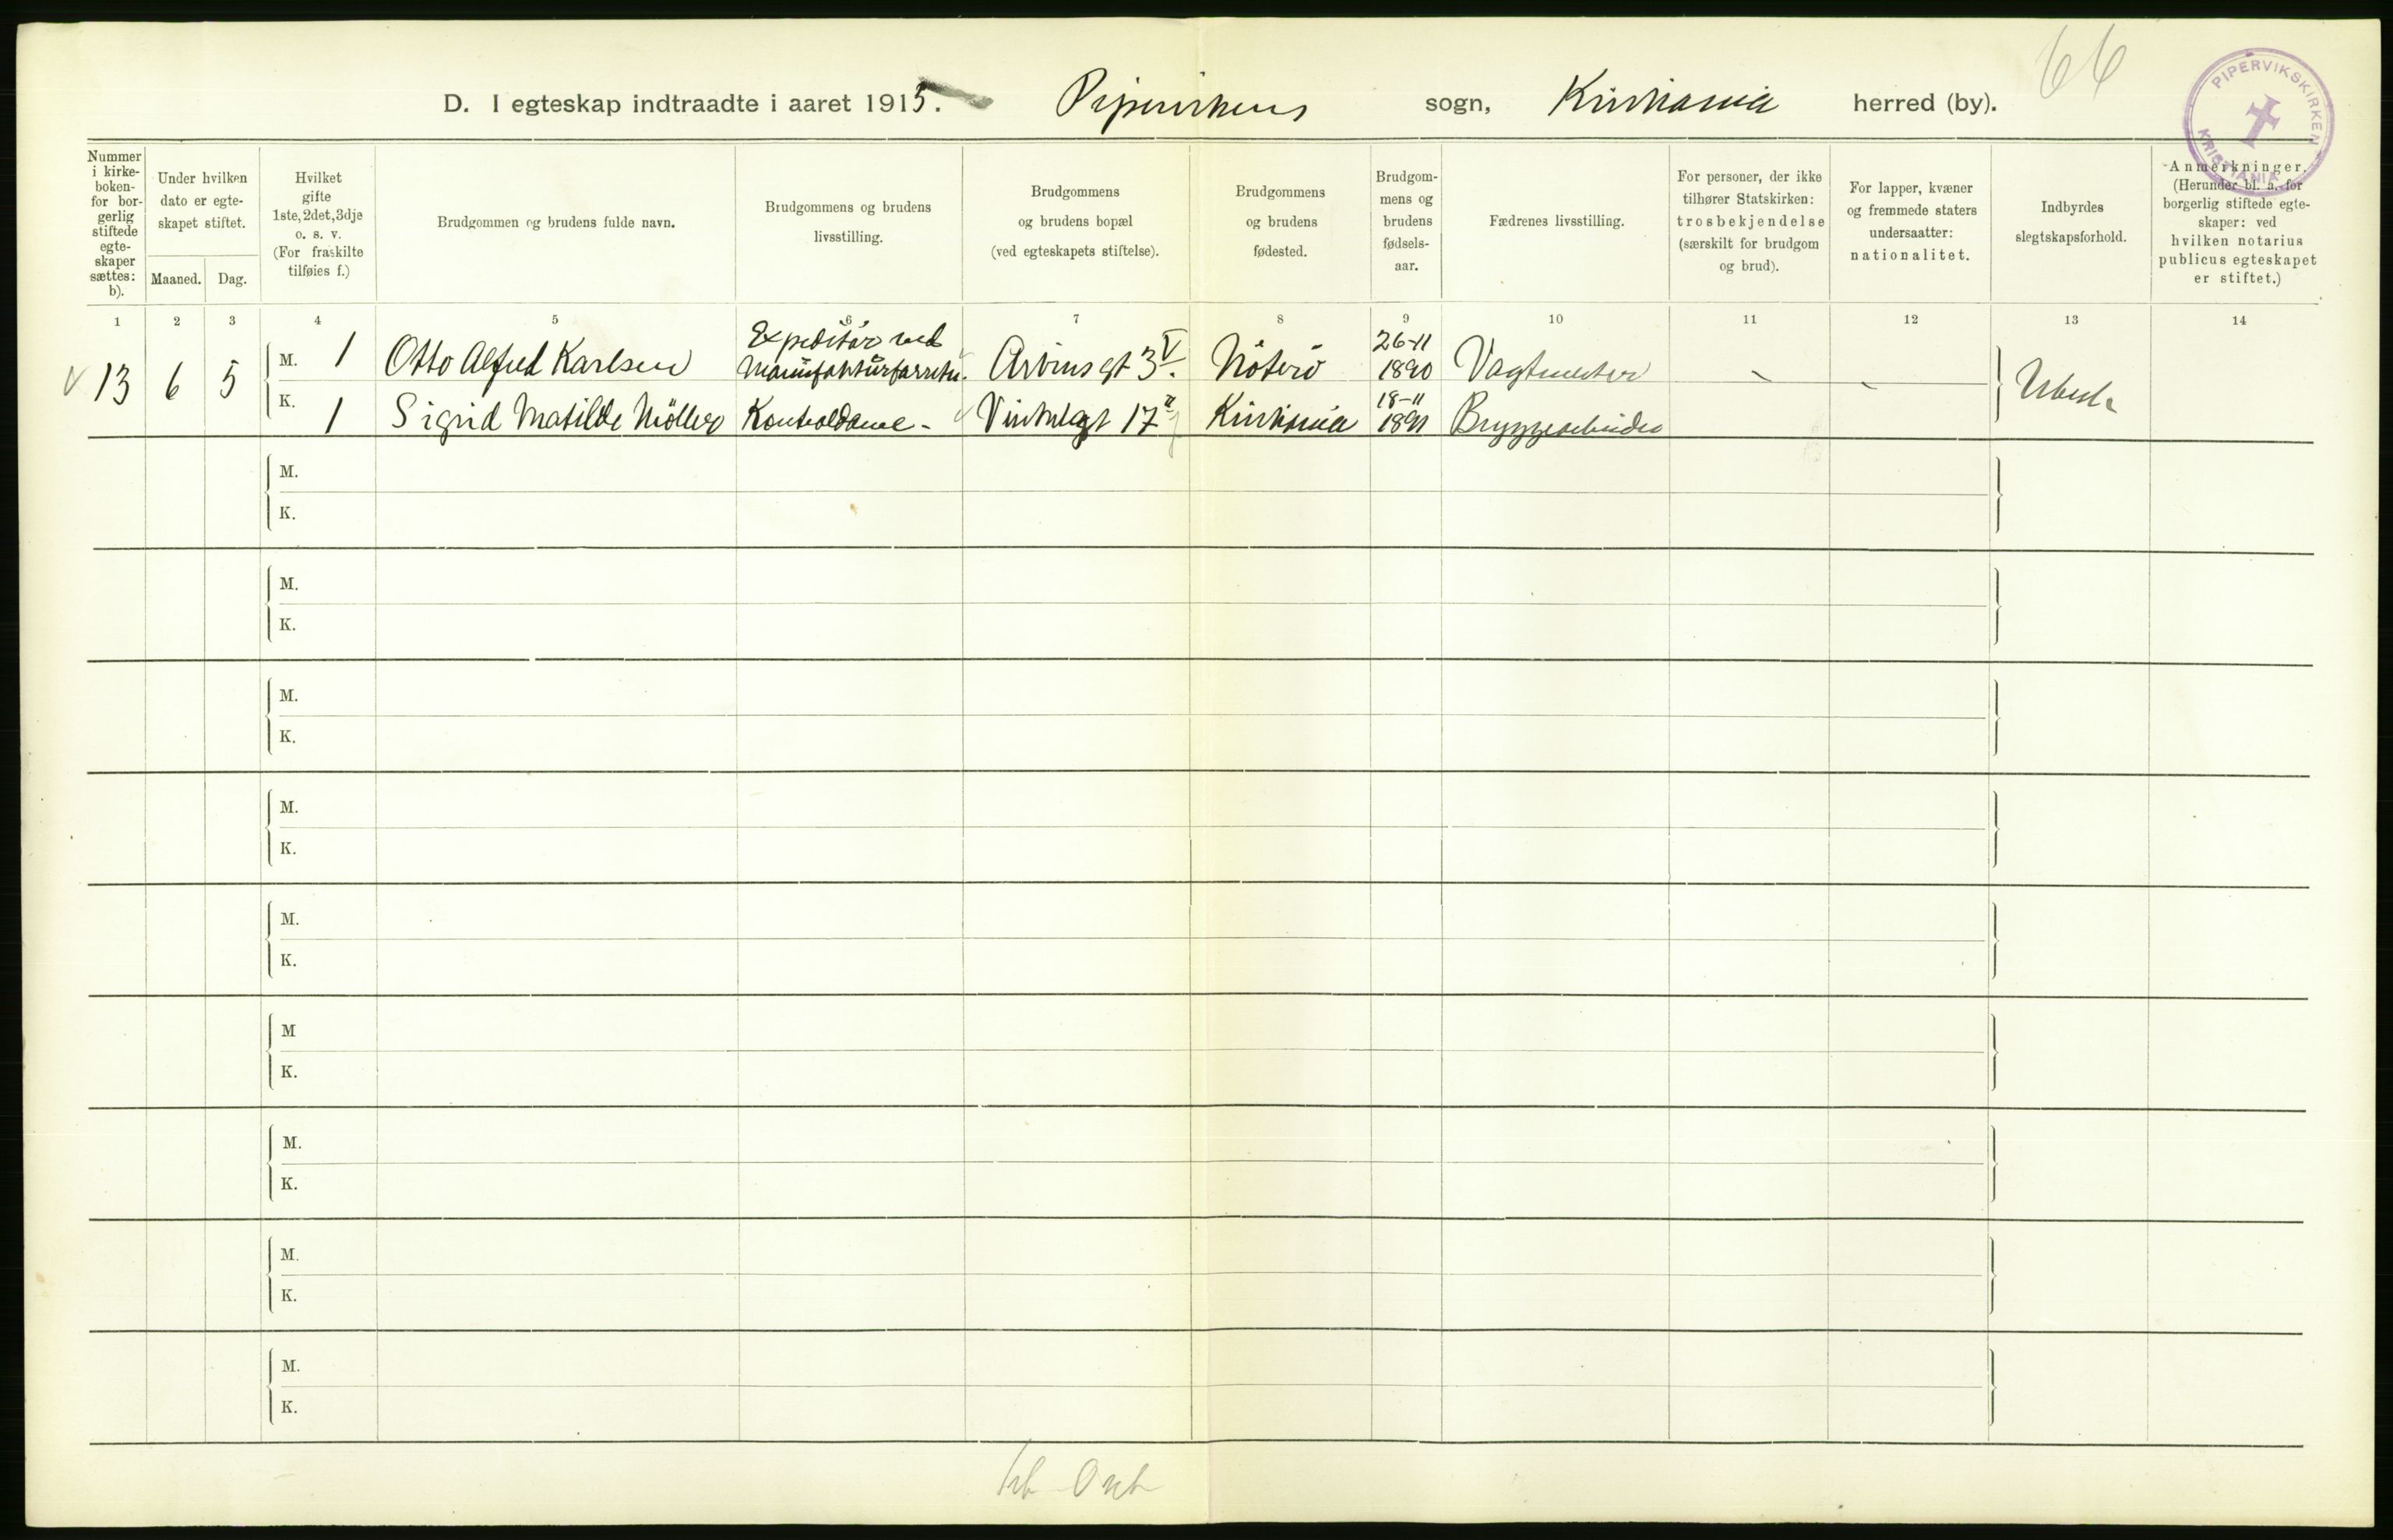 66
PIPERVIKSKIRKEN
KRISTIANIA
D. I egteskap indtraadte i aaret 1915. Pipervikens sogn, Kristiania herred (by).
Nummer i kirke-boken- for bor-gerlig stiftede egte-skaper sættes: b).
Under hvilken dato er egte-skapet stiftet.
Maaned. Dag.
Hvilket gifte 1ste, 2det, 3dje o. s. v. (For fraskilte tilføies f.)
Brudgommen og brudens fulde navn.
Brudgommens og brudens livsstilling.
Brudgommens og brudens bopæl (ved egteskapets stiftelse).
Brudgommens og brudens fødested.
Brudgom-mens og brudens fødsels-aar.
Fædrenes livsstilling.
For personer, der ikke tilhører Statskirken: trosbekjendelse (særskilt for brudgom og brud).
For lapper, kvæner og fremmede staters undersaatter: nationalitet.
Indbyrdes slegtskapsforhold.
Anmerkninger. (Herunder bl. a. for borgerlig stiftede egte-skaper: ved hvilken notarius publicus egteskapet er stiftet.)
1 2 3 4 5 6 7 8 9 10 11 12 13 14
13 6 5 M. 1 Otto Alfred Karlsen Expeditør ved Manufakturforretn. Arbins gt 3 V. Nøterø 26-11 1890 Vagtmester - - Ubesl.
K. 1 Sigrid Matilde Möller Kontoldame - Vinkelgt 17 II Kristiania 18-11 1891 Bryggearbeider
M.
K.
M.
K.
M.
K.
M.
K.
M.
K.
M
K.
M.
K.
M.
K.
M.
K.